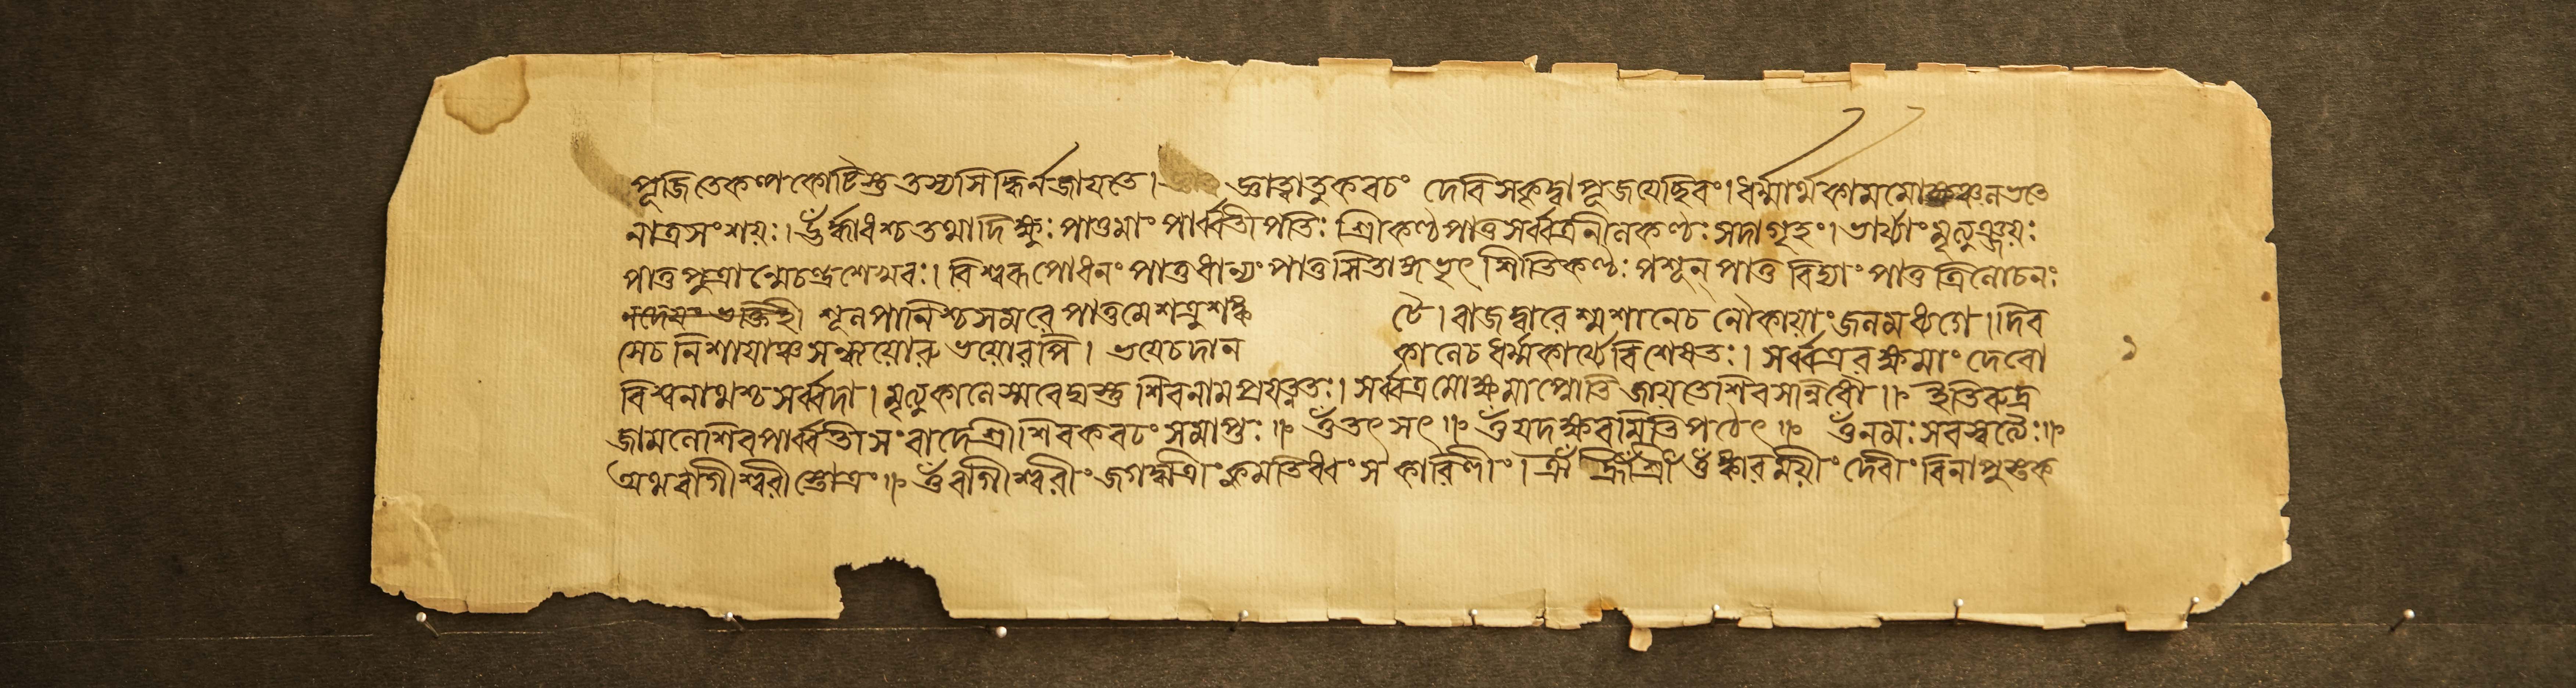 পূজিতেকল্পকোটিস্তু তস্যসিদ্ধির্নজায়তে। জ্ঞাত্বাতুকবচং দেবিসকৃদ্বাপূজয়েচ্ছিবং। ধর্ম্মার্থকামমোক্ষঞ্চলভতে
নাত্রসংশয়ঃ। ওঁর্দ্ধাধশ্চতথাদিক্ষুঃ পাতুমাং পার্ব্বতীপতিঃ শ্রীকণ্ঠপাতুসর্ব্বত্রনীলকণ্ঠঃ সদাগৃহং। ভার্য্যাং মৃত্যুঞ্জয়ঃ
পাতু পুত্রান্মেচন্দ্রশেখরঃ। বিশ্বরূপোধনং পাতুধান্যং পাতু শিতিকণ্ঠঃ পশূন্ পাতু বিদ্যাং পাতু ত্রিলোচনঃ
শূলপানিশ্চসমরে পাতুমেশত্রুশঙ্ক টে। রাজদ্বারে শ্মশানেচ নৌকায়াং জলমধ্যগে। দিব
সেচ নিশায়াঞ্চসন্ধ্যয়োরুভয়োরপি। ভয়েচদান কালেচ ধর্ম্মকার্য্যেবিশেষতঃ। সর্ব্বত্ররক্ষমাং দেবো
বিশ্বনাথশ্চসর্ব্বদা। মৃত্যুকালেস্মরেদ্যস্তু শিবনামপ্রযত্নতঃ। সর্ব্বত্রমোক্ষমাপ্নোতি জায়তেশিবসান্নিধৌ॥ ইতিরুদ্র
জামলেশিবপার্ব্বতীসংবাদেশ্রীশিবকবচং সমাপ্তঃ॥ ওঁতৎ সৎ॥ ওঁযদক্ষরমিতিপঠেৎ॥ ওঁনমঃ সরস্বত্যৈঃ॥
অথবাগীশ্বরীস্তোত্রং॥ ওঁবাগীশ্বরীং জগদ্ধাত্রীং কুমতিধ্বংসকারিণীং। ঐঁ হ্রীঁ শ্রীঁ ওঁঙ্কারময়ীং দেবীং বিনাপুস্তক
১